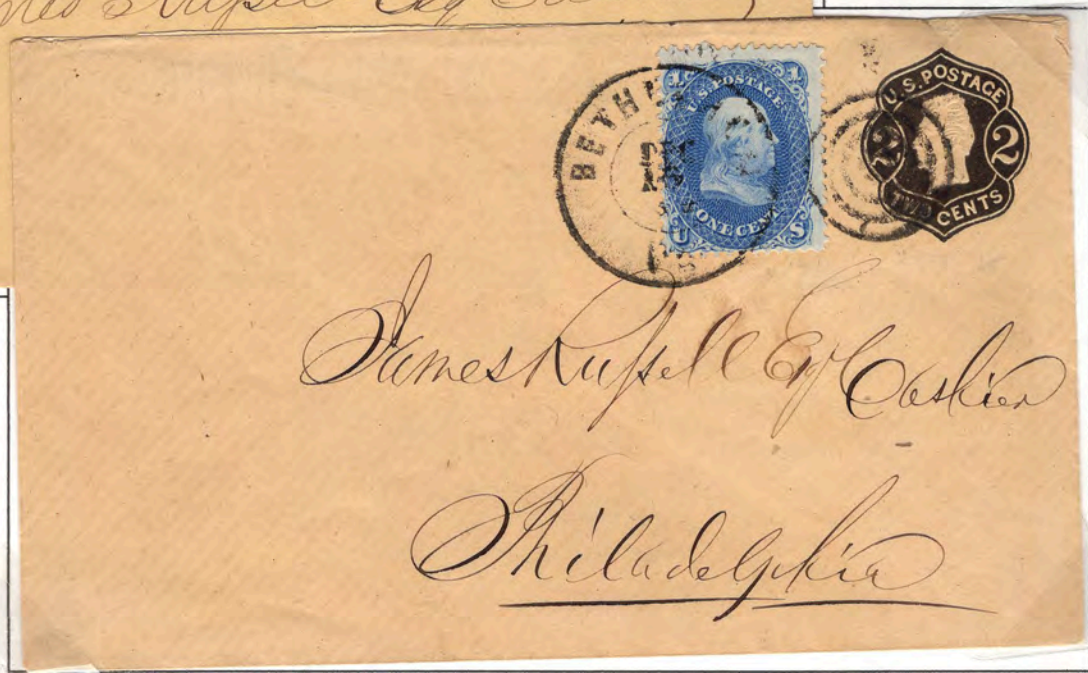 Esq
BETH
1 1
U.S. POSTAGE
ONE CENT
U S
U.S. POSTAGE
2 2
TWO CENTS
James Russell Esq Cashier
Philadelphia